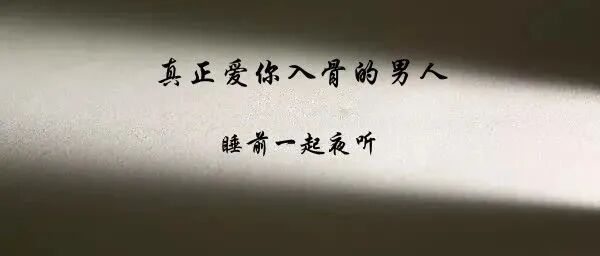 真正爱你入骨的男人
睡前一起夜听